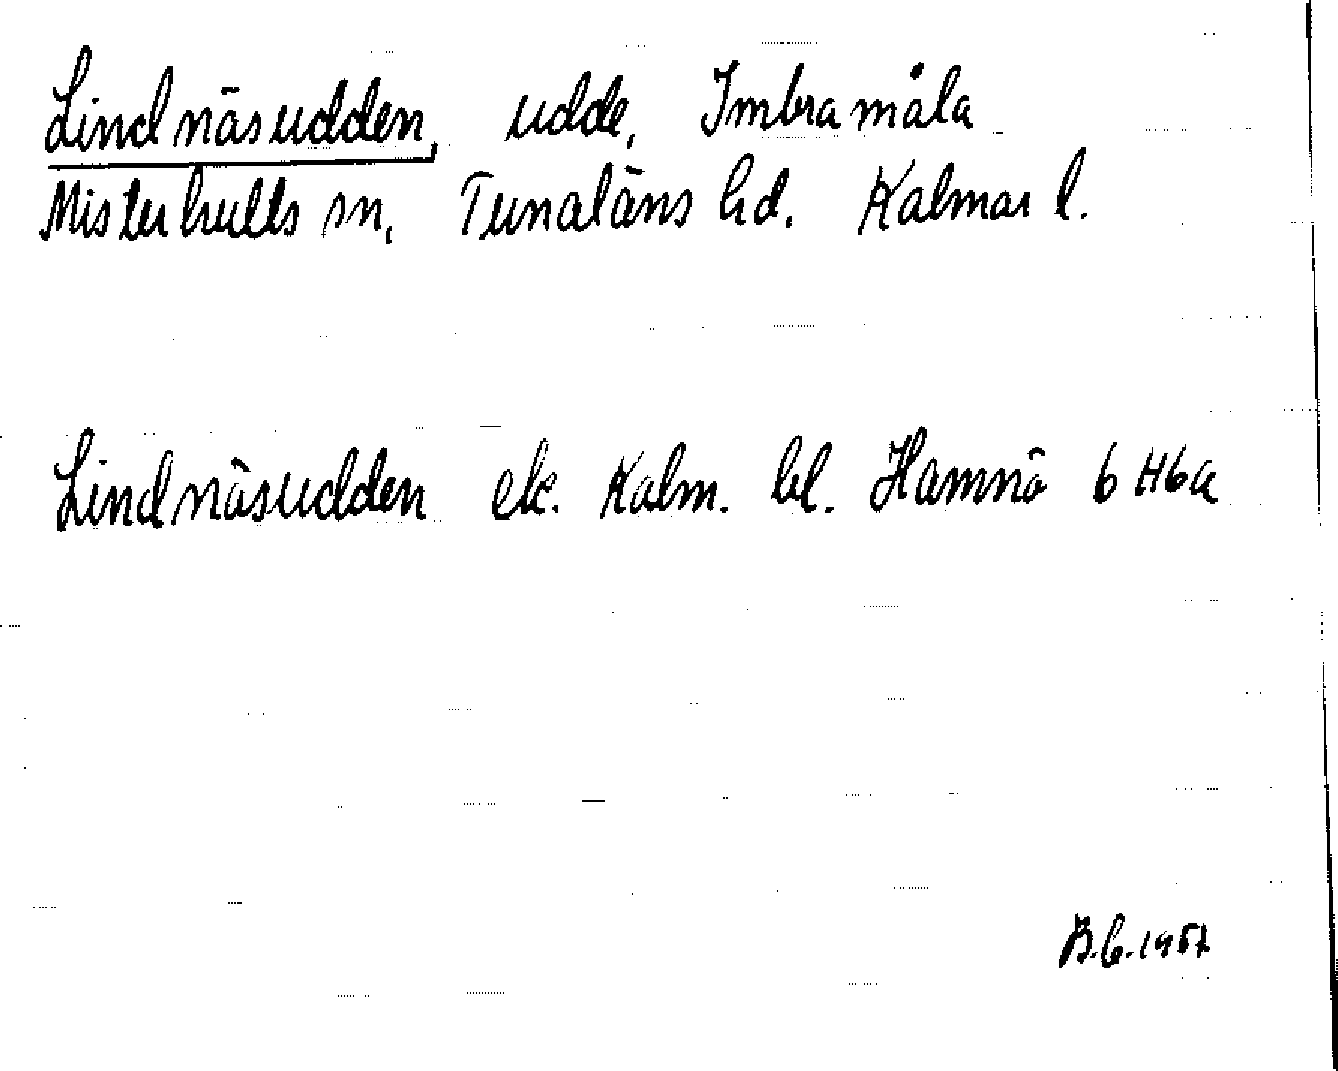 Lindnäsudden, udde, Imbramåla
Misterhults sn, Tunaläns hd. Kalmar l.
Lindnäsudden ek. Kalm. bl. Hamnö 6 H6a